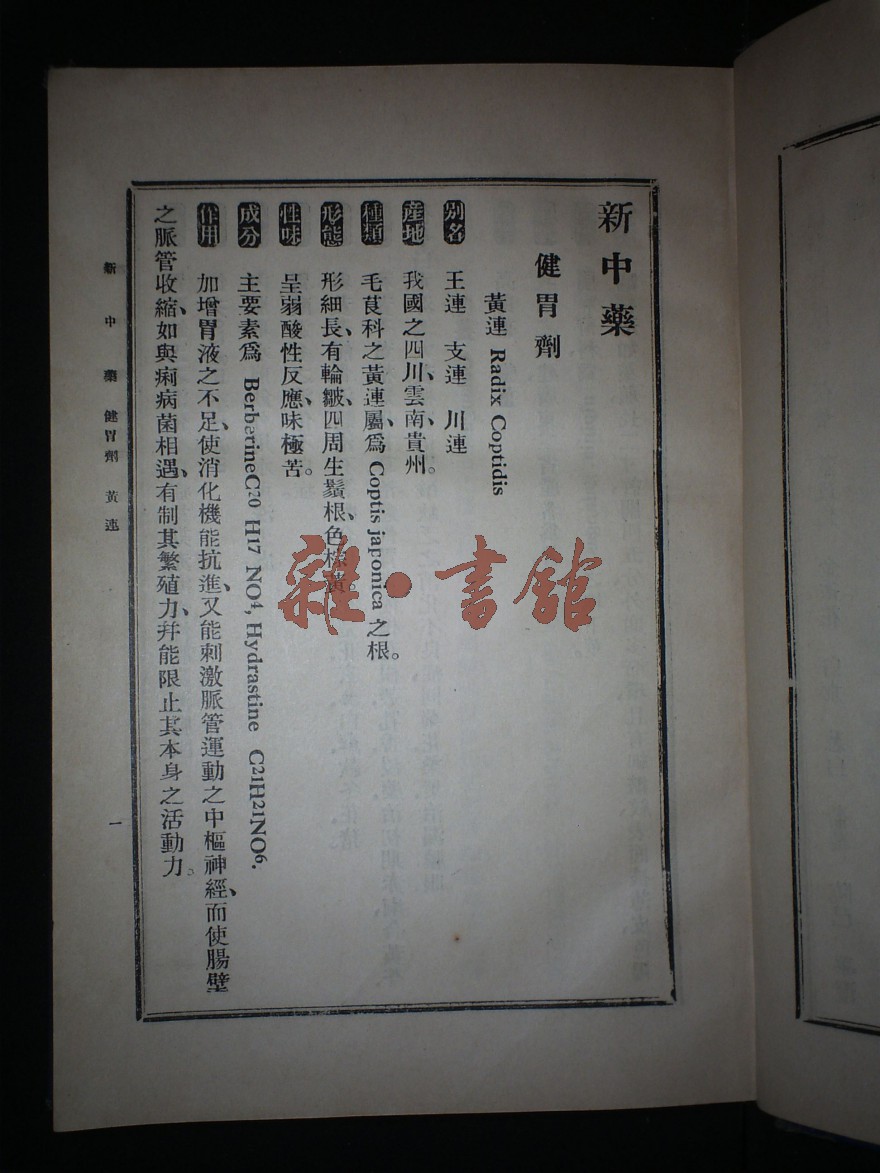 新中藥
健胃劑
黃連 Radix Coptidis
別名 王連 支連 川連
產地 我國之四川、雲南、貴州。
種類 毛茛科之黃連屬、爲 Coptis japonica 之根。
形態 形細長、有輪皺、四周生鬚根、色棕黃。
性味 呈弱酸性反應、味極苦。
成分 主要素爲 Berberine C20 H17 NO4, Hydrastine C21H21NO6.
作用 加增胃液之不足、使消化機能抗進、又能刺激脈管運動之中樞神經、而使腸壁
之脈管收縮、如與痢病菌相遇、有制其繁殖力、并能限止其本身之活動力。
新中藥 健胃劑 黃連 一
雜·書館